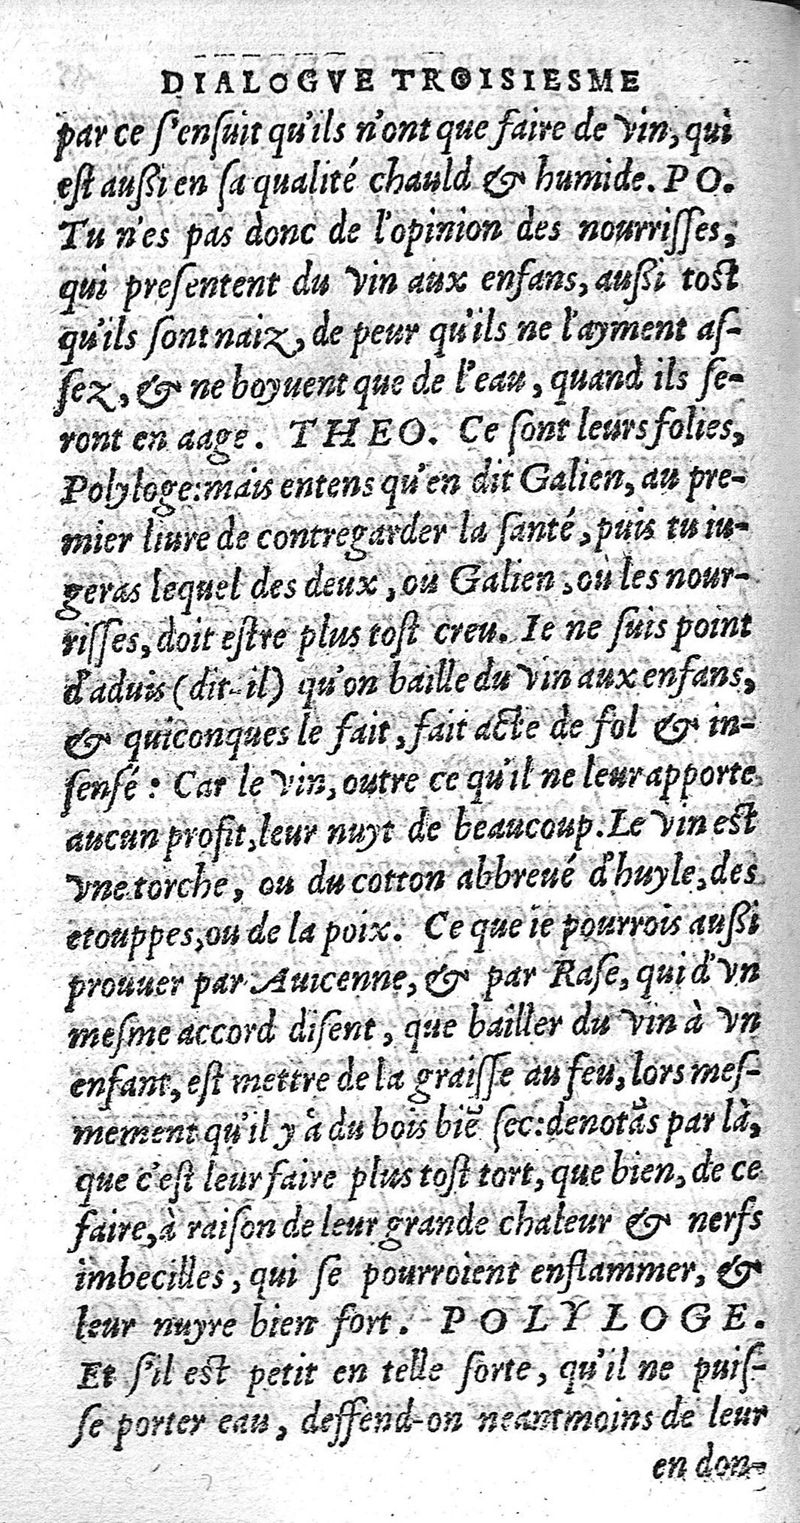 DIALOGVE TROISIESME
par ce s'ensuit qu'ils n'ont que faire de vin, qui
est aussi en sa qualité chauld & humide. PO.
Tu n'es pas donc de l'opinion des nourrisses,
qui presentent du vin aux enfans, aussi tost
qu'ils sont naiz, de peur qu'ils ne l'ayment as-
sez, & ne boyuent que de l'eau, quand ils se-
ront en aage. THEO. Ce sont leurs folies,
Polyloge: mais entens qu'en dit Galien, au pre-
mier liure de contregarder la santé, puis tu iu-
geras lequel des deux, ou Galien, où les nour-
risses, doit estre plus tost creu. Ie ne suis point
d'aduis (dit-il) qu'on baille du vin aux enfans,
& quiconques le fait, fait acte de fol & in-
sensé : Car le vin, outre ce qu'il ne leur apporte
aucun profit, leur nuyt de beaucoup. Le vin est
vne torche, ou du cotton abbreué d'huyle, des
etouppes, ou de la poix. Ce que ie pourrois aussi
prouuer par Auicenne, & par Rase, qui d'vn
mesme accord disent, que bailler du vin à vn
enfant, est mettre de la graisse au feu, lors mes-
mement qu'il y à du bois biē sec: denotãs par là,
que c'est leur faire plus tost tort, que bien, de ce
faire, à raison de leur grande chaleur & nerfs
imbecilles, qui se pourroient enflammer, &
leur nuyre bien fort. POLYLOGE.
Et s'il est petit en telle sorte, qu'il ne puis-
se porter eau, deffend-on neantmoins de leur
en don-